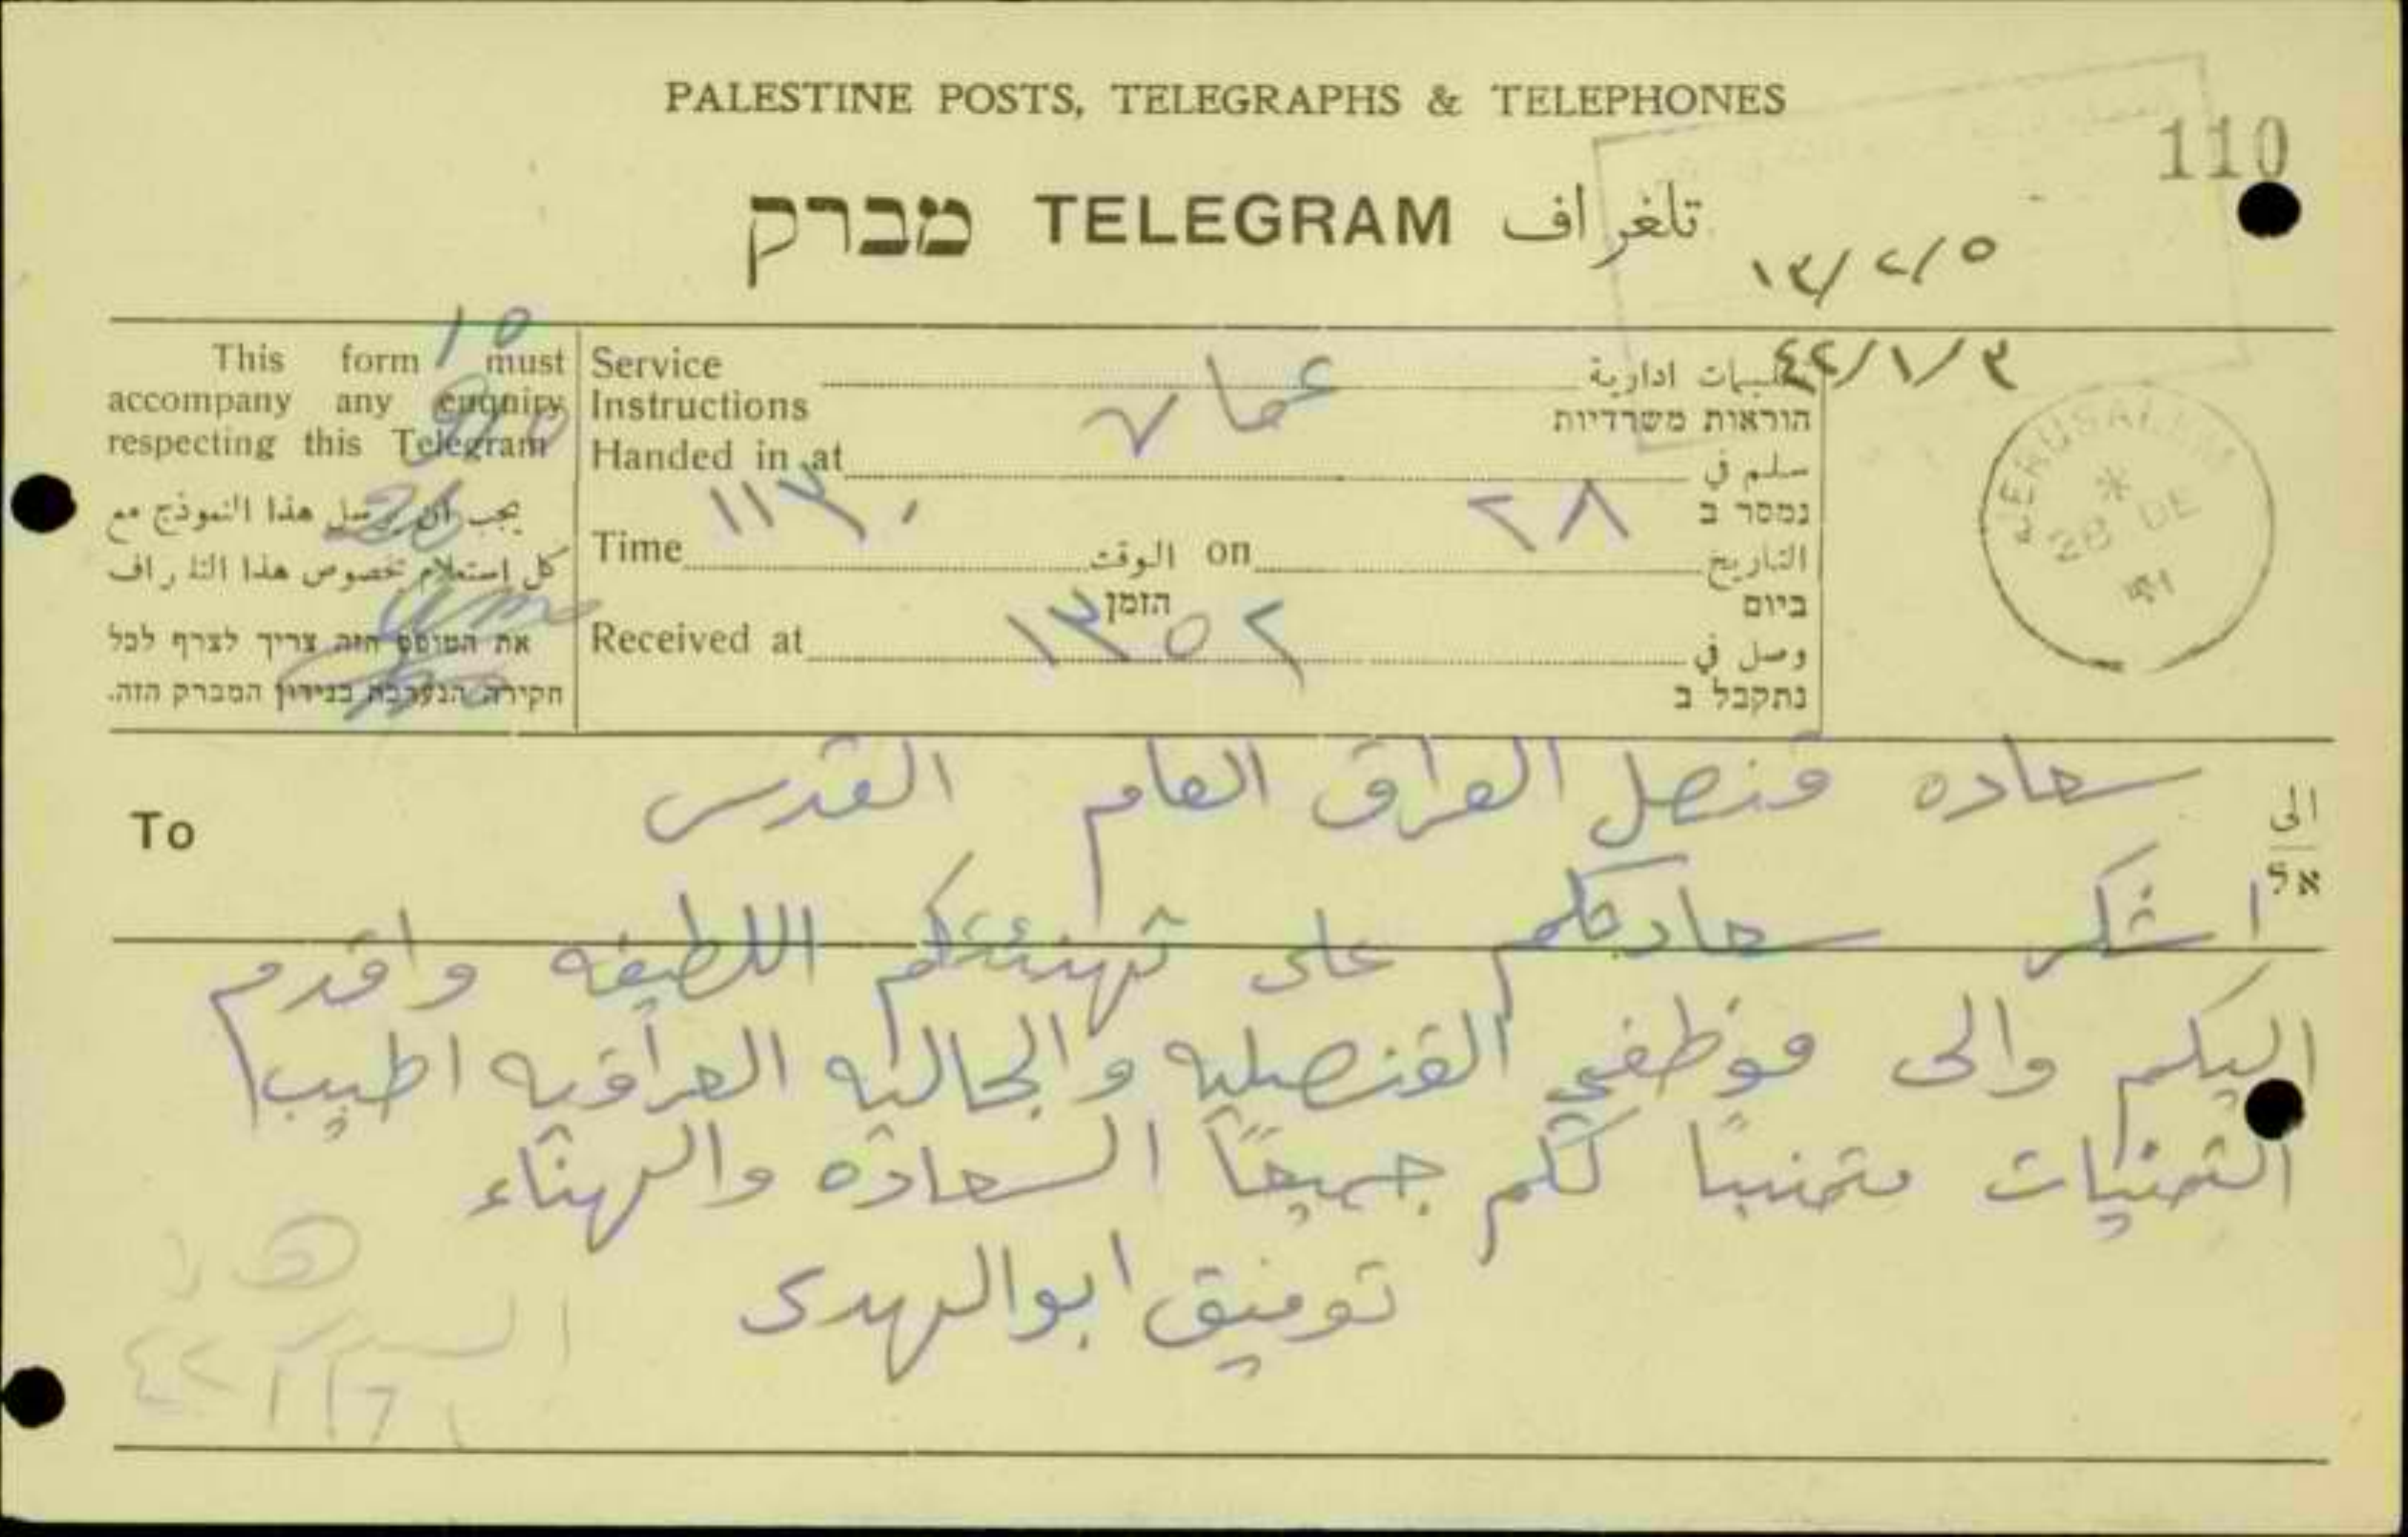 PALESTINE POSTS, TELEGRAPHS & TELEPHONES
110
מברק TELEGRAM تلغراف
١٣/٢/٥
٤٢/١/٣
This form must
accompany any enquiry
respecting this Telegram
يجب ان يرسل هذا النموذج مع
كل استعلام بخصوص هذا التلغراف
את הטופס הזה צריך לצרף לכל
חקירה הנערכת בנידון המברק הזה.
Service
Instructions
عمان
تعليمات ادارية
הוראות משרדיות
Handed in at
سلم في
נמסר ב
Time ١١٣٠ الوقت
הזמן
on ٢٨ التاريخ
ביום
Received at ١٣٥٢ وصل في
נתקבל ב
JERUSALEM
28 DE
41
To
الى
אל
سعاده قنصل العراق العام القدس
اشكر سعادتكم على تهنئتكم اللطيفه واقدم
اليكم والى موظفي القنصليه والجاليه العراقيه اطيب
التمنيات متمنيا لكم جميعًا السعادة والهناء
توفيق ابوالهدى